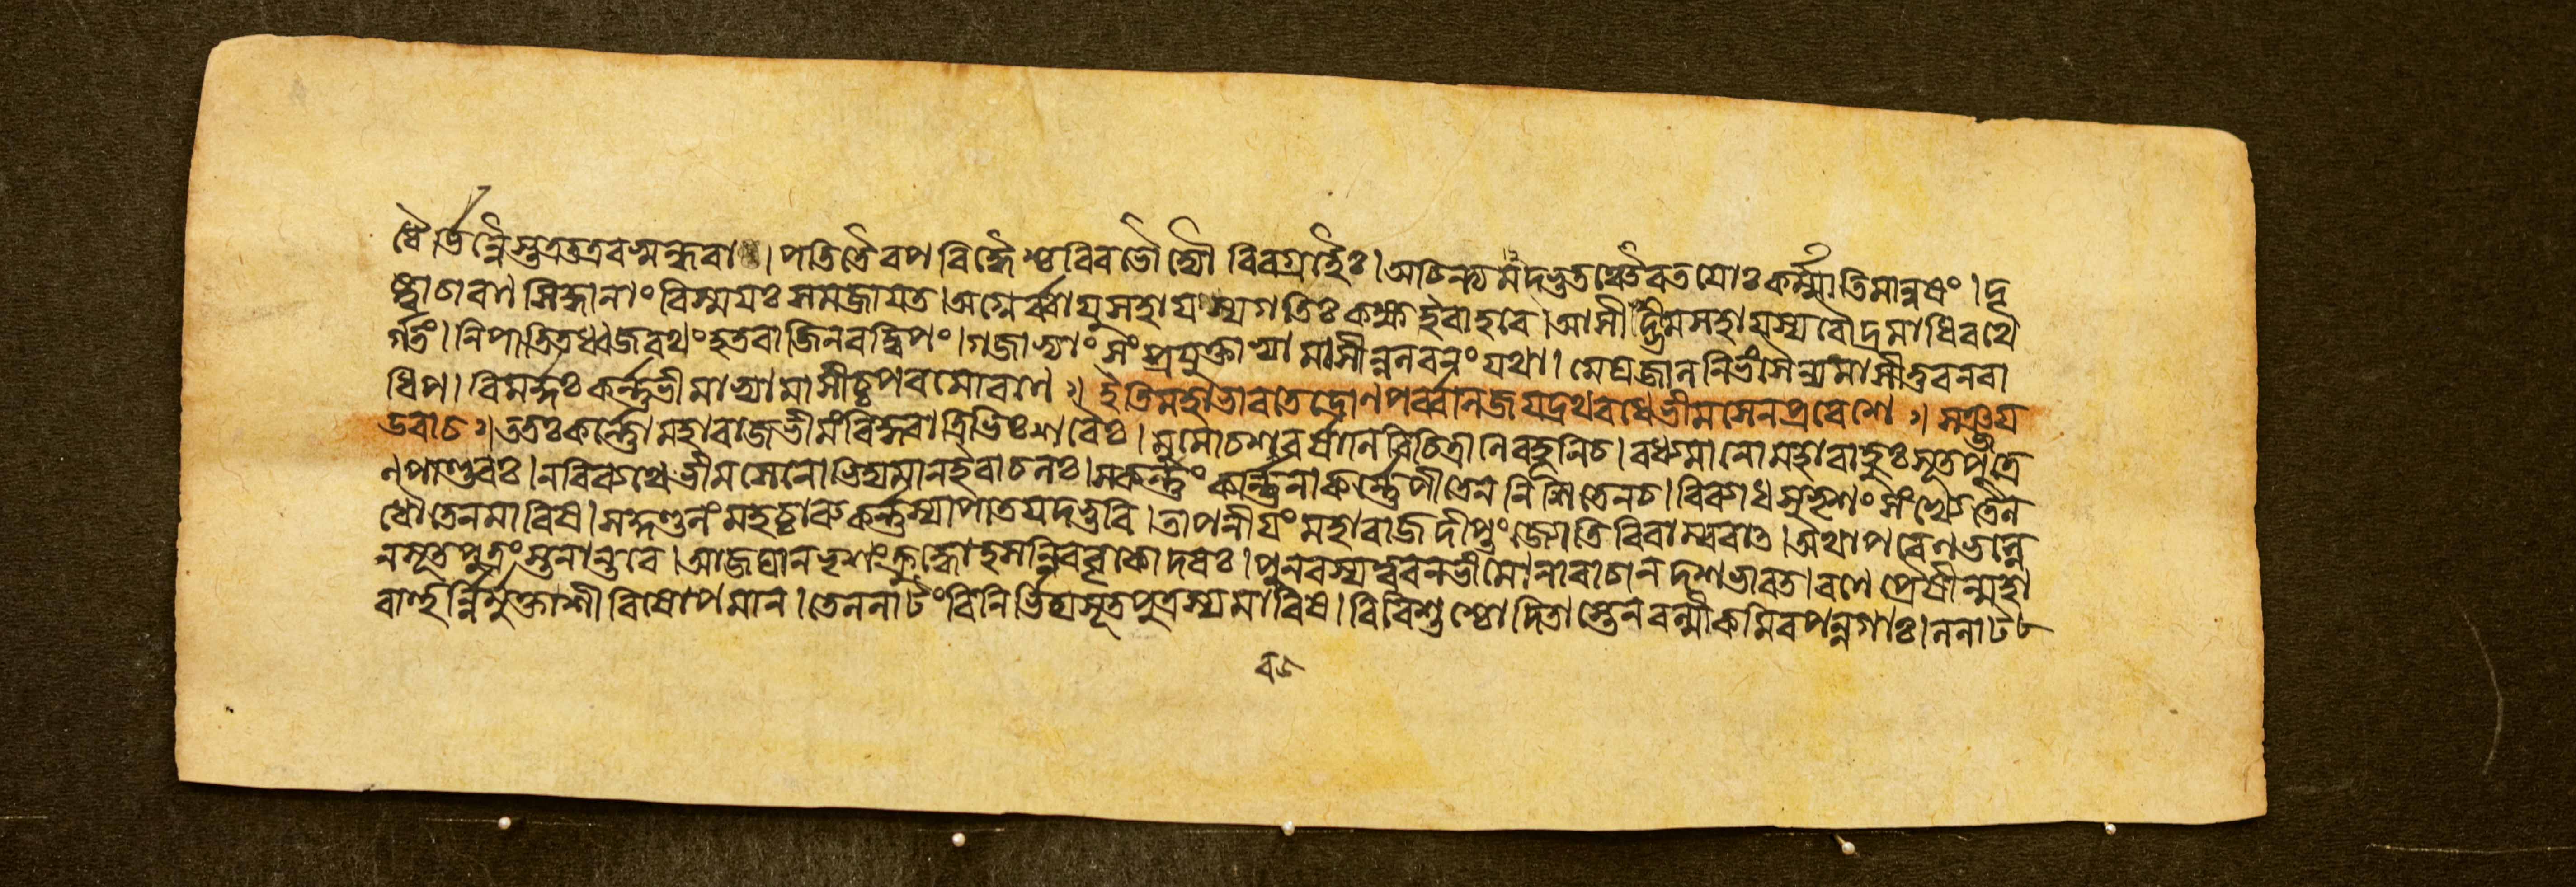 ধৈর্ভিন্নৈস্তত্রতত্রবসুন্ধরা। পতিতৈরপবিদ্ধৈশ্চবিবভৌদ্যৌরিবগ্রহৈঃ। অচিন্ত্যমদ্ভুতঞ্চৈবতযোঃকর্ম্মাতিমানুষং। দৃ
ষ্ট্বাচারণসিদ্ধানাংবিস্মযঃসমজাযত।অগ্নের্ব্বাযুসহাযস্যগতিঃকক্ষইবাহবে।আসীদ্ভীমসহাযস্যরৌদ্রমাধিরথে
র্গতং।নিপাতিতধ্বজরথংহতবাজিনরদ্বিপং।গজাভ্যাংসংপ্রযুক্তাভ্যামাসীন্নলবনংযথা। মেঘজালনিভংসৈন্যমাসীত্তবনরা
ধিপ। বিমর্দ্দঃকর্ন্নভীমাভ্যামাসীচ্চপরমোরণে ঃ। ইতিমহাভারতেদ্রোণপর্ব্বনিজযদ্রথবধেভীমসেনপ্রবেশে ঃ। সঞ্জয
উবাচ ঃ।ততঃকর্ন্নোমহারাজভীমংবিদ্ধ্বাত্রিভিঃশরৈঃ। মুমোচশরবর্ষানিবিচিত্রানিবহূনিচ। বধ্যমানোমহাবাহুঃসূতপুত্রে
ণপাণ্ডবঃ।নবিব্যথেভীমসেনোভিদ্যমানইবাচলঃ।সকর্ন্নংকর্ন্নিনাকর্ন্নেপীতেননিশিতেনচ। বিব্যাধসুভৃশংসংখ্যেতৈল
ধৌতেনমারিষ।সকুণ্ডলংমহচ্চারুকর্ন্নস্যাপাতযদ্ভুবি।তাপনীযংমহারাজদীপ্তংজ্যোতিরিবাম্বরাৎ।অথাপরেণভল্লে
নসূতপুত্রংস্তনান্তরে।আজঘানভৃশংক্রুদ্ধোহসন্নিববৃকোদরঃ।পুনরস্যত্বরনভীমোনারাচানদশভারত।রণেপ্রৈষীন্মহা
বাহুর্নির্মুক্তাশীবিষোপমান।তেললাটংবিনির্ভিদ্যসূতপুত্রস্যমারিষ। বিবিশুশ্চোদিতাস্তেনবল্মীকমিবপন্নগাঃ।ললাট